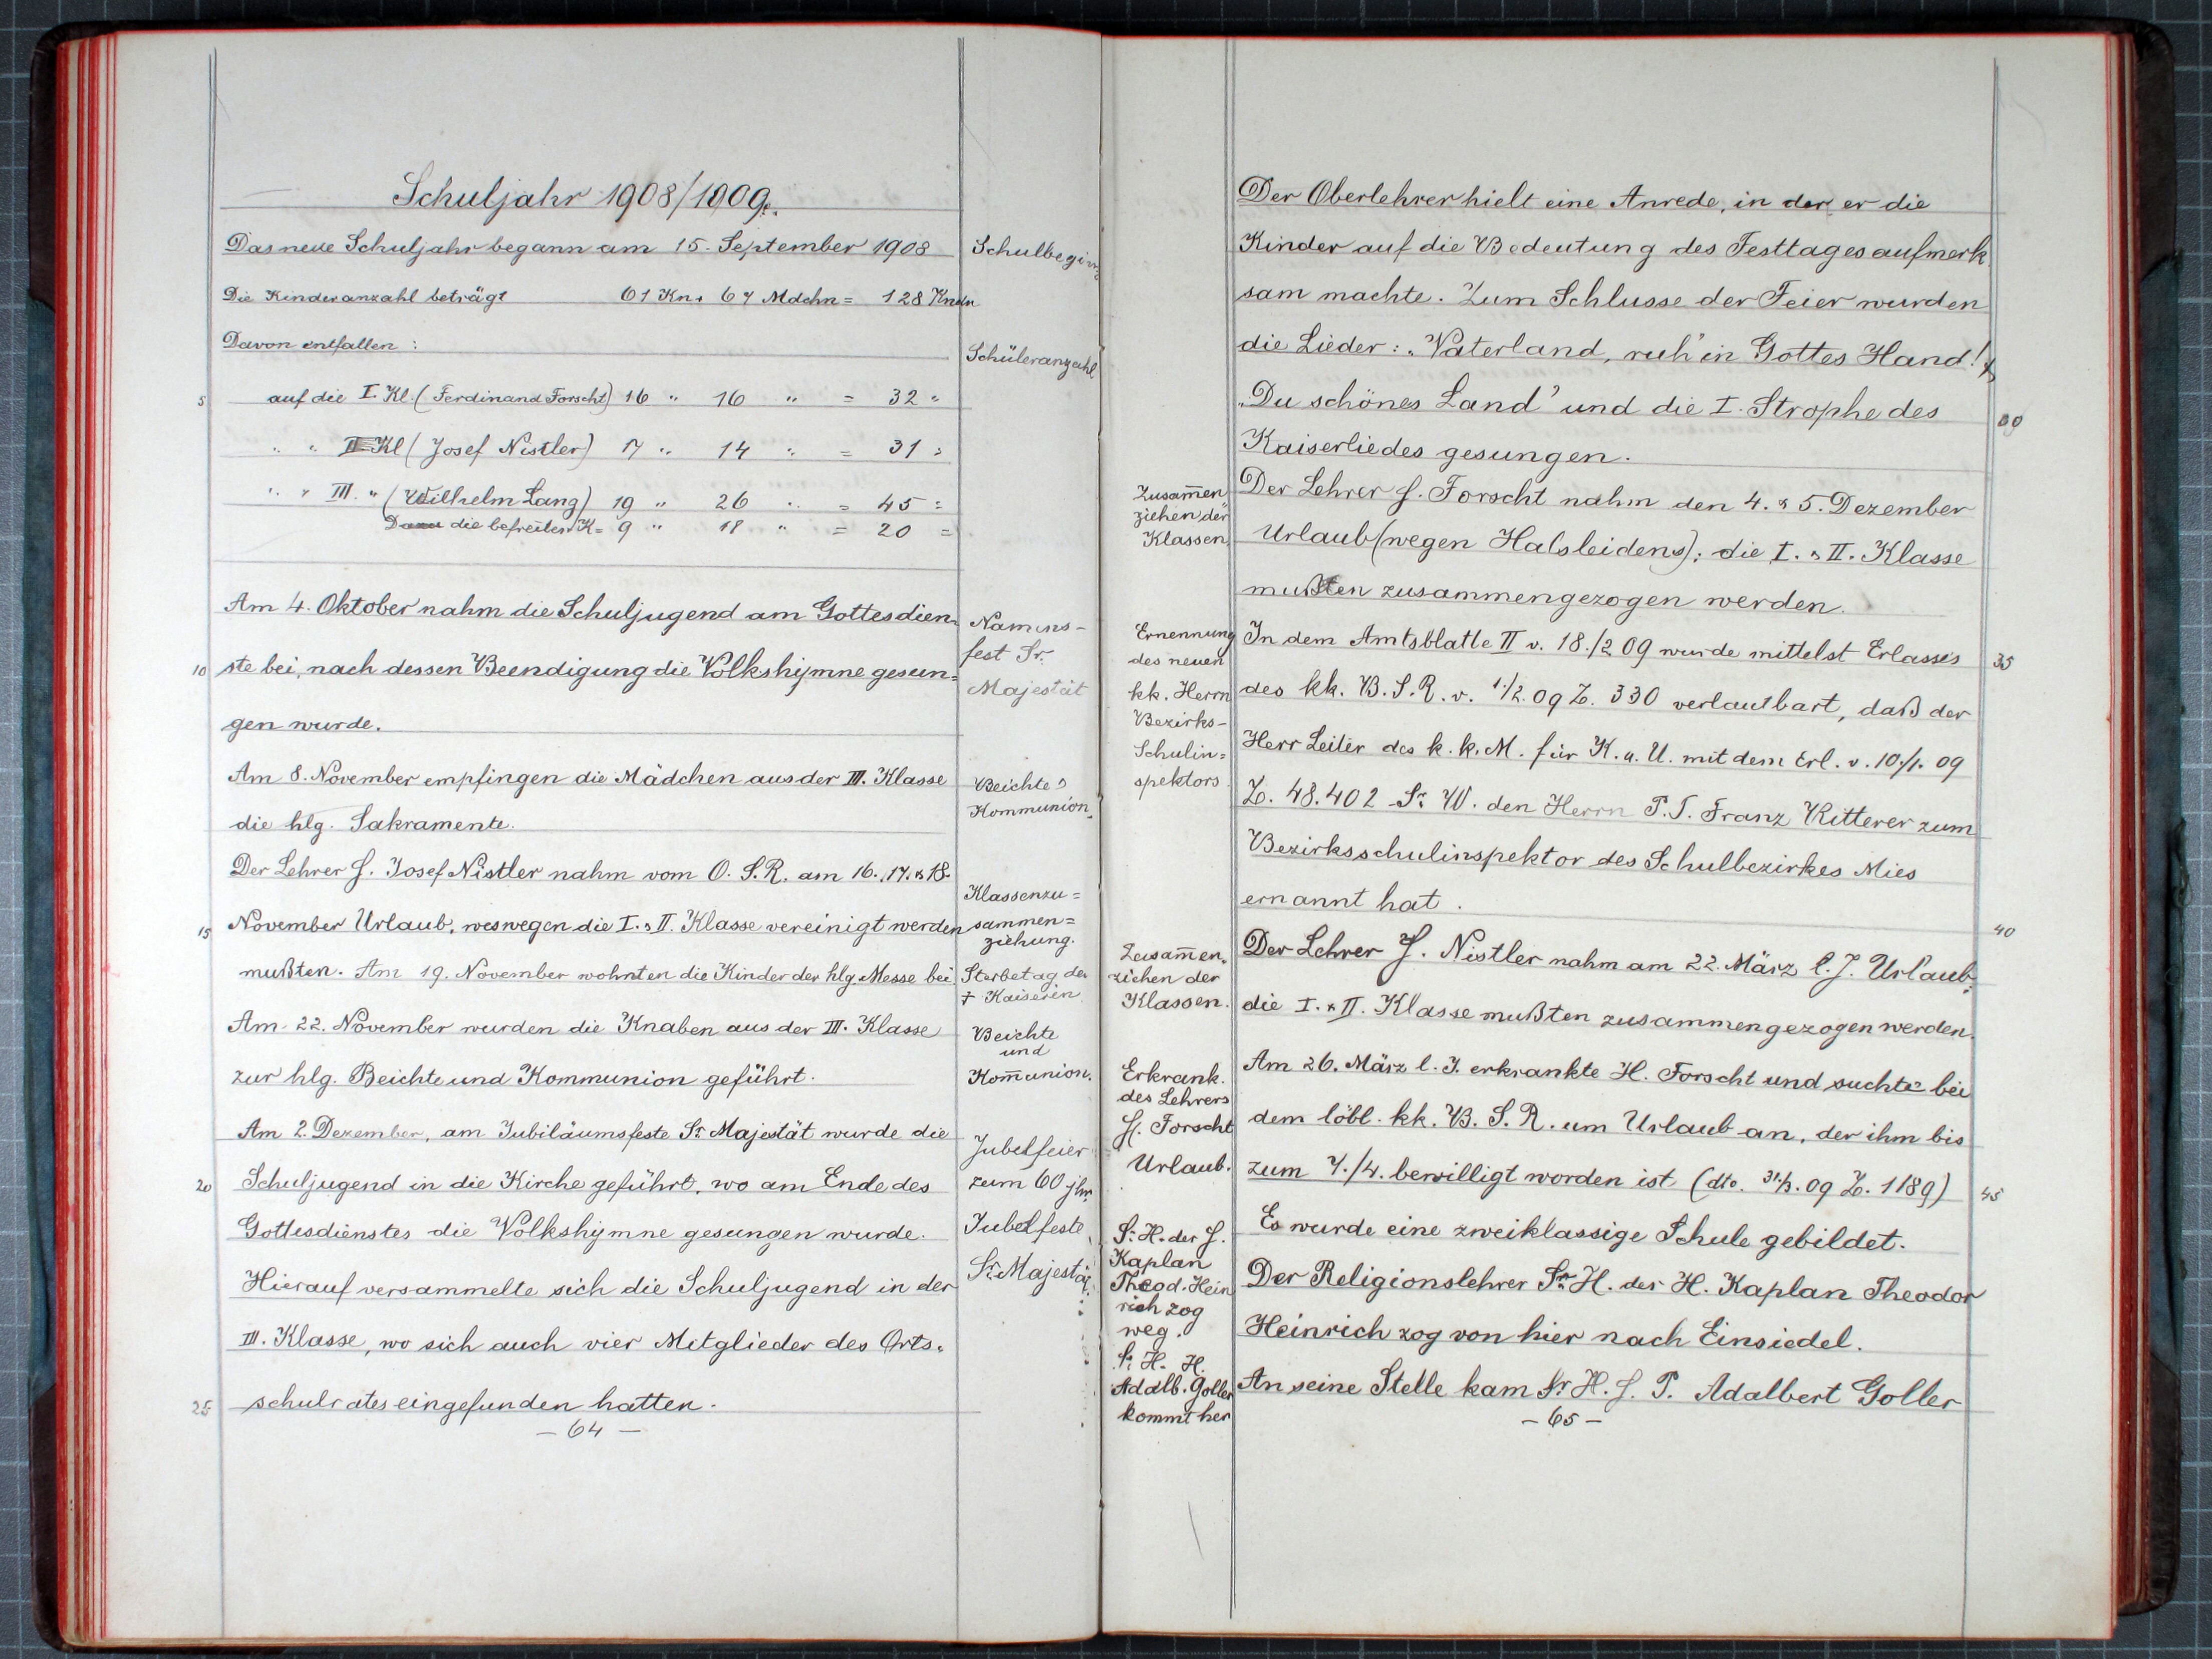 Schuljahr 1908/1909.
Das neue Schuljahr begann am 15. September 1908
Schulbeginn
Die Kinderanzahl beträgt 61 Kn. + 67 Mdchn = 128 Kndr
Davon entfallen :
Schüleranzahl
5 auf die I. Kl. (Ferdinand Forscht) 16 " 16 " = 32 "
" " II. Kl (Josef Nistler) 17 " 14 " = 31 "
" " III. " (Wilhelm Lang) 19 " 26 " = 45 "
Dazu die befreiten K = 9 " 18 " = 20 =
Am 4. Oktober nahm die Schuljugend am Gottesdien=
10 ste bei, nach dessen Beendigung die Volkshymne gesun=
gen wurde.
Namens-
fest Sr.
Majestät
Am 8. November empfingen die Mädchen aus der III. Klasse
die hlg. Sakramente.
Beichte &
Kommunion.
Der Lehrer H. Josef Nistler nahm vom O. S. R. am 16., 17. & 18.
15 November Urlaub, weswegen die I. & II. Klasse vereinigt werden
mußten. Am 19. November wohnten die Kinder der hlg. Messe bei
Klassenzu=
sammen=
ziehung.
Sterbetag der
† Kaiserin
Am 22. November wurden die Knaben aus der III. Klasse
zur hlg. Beichte und Kommunion geführt.
Beichte
und
Kom̄union.
Am 2. Dezember, am Jubiläumsfeste Sr Majestät wurde die
20 Schuljugend in die Kirche geführt, wo am Ende des
Gottesdienstes die Volkshymne gesungen wurde.
Hierauf versammelte sich die Schuljugend in der
III. Klasse, wo sich auch vier Mitglieder des Orts=
25 schulrates eingefunden hatten.
Jubelfeier
zum 60 jhr.
Jubelfeste
Sr. Majestät
- 64 -
Der Oberlehrer hielt eine Anrede, in der er die
Kinder auf die Bedeutung des Festtages aufmerk
sam machte. Zum Schlusse der Feier wurden
die Lieder: „Vaterland, ruh' in Gottes Hand!"
„Du schönes Land" und die I. Strophe des 30
Kaiserliedes gesungen.
Zusam̄en
ziehen der
Klassen.
Der Lehrer H. Forscht nahm den 4. & 5. Dezember
Urlaub (wegen Halsleidens); die I. & II. Klasse
mußten zusammengezogen werden.
Ernennung
des neuen
kk. Herrn
Bezirks-
Schulin=
spektors
In dem Amtsblatte II v. 18./2 09 wurde mittelst Erlasses 35
des kk. B. S. R. v. 1./2. 09 Z. 330 verlautbart, daß der
Herr Leiter des k. k. M. für K. u. U. mit dem Erl. v. 10./1. 09
Z. 48.402 Sr W. den Herrn P. T. Franz Ritterer zum
Bezirksschulinspektor des Schulbezirkes Mies
ernannt hat. 40
Zusam̄en=
ziehen der
Klassen.
Der Lehrer H. Nistler nahm am 22. März l. J. Urlaub;
die I. & II. Klasse mußten zusammengezogen werden.
Erkrank.
des Lehrers
H. Forscht
Urlaub.
Am 26. März l. J. erkrankte H. Forscht und suchte bei
dem löbl. kk. B. S. R. um Urlaub an, der ihm bis
zum 7./4. bewilligt worden ist (dto. 31./3. 09 Z. 1189) 45
Es wurde eine zweiklassige Schule gebildet.
Sr. H. der H.
Kaplan
Theod. Hein
rich zog
weg.
Der Religionslehrer Sr H. der H. Kaplan Theodor
Heinrich zog von hier nach Einsiedel.
Sr. H. H.
Adalb. Goller
kommt her
An seine Stelle kam Sr H. H. P. Adalbert Goller
- 65 -